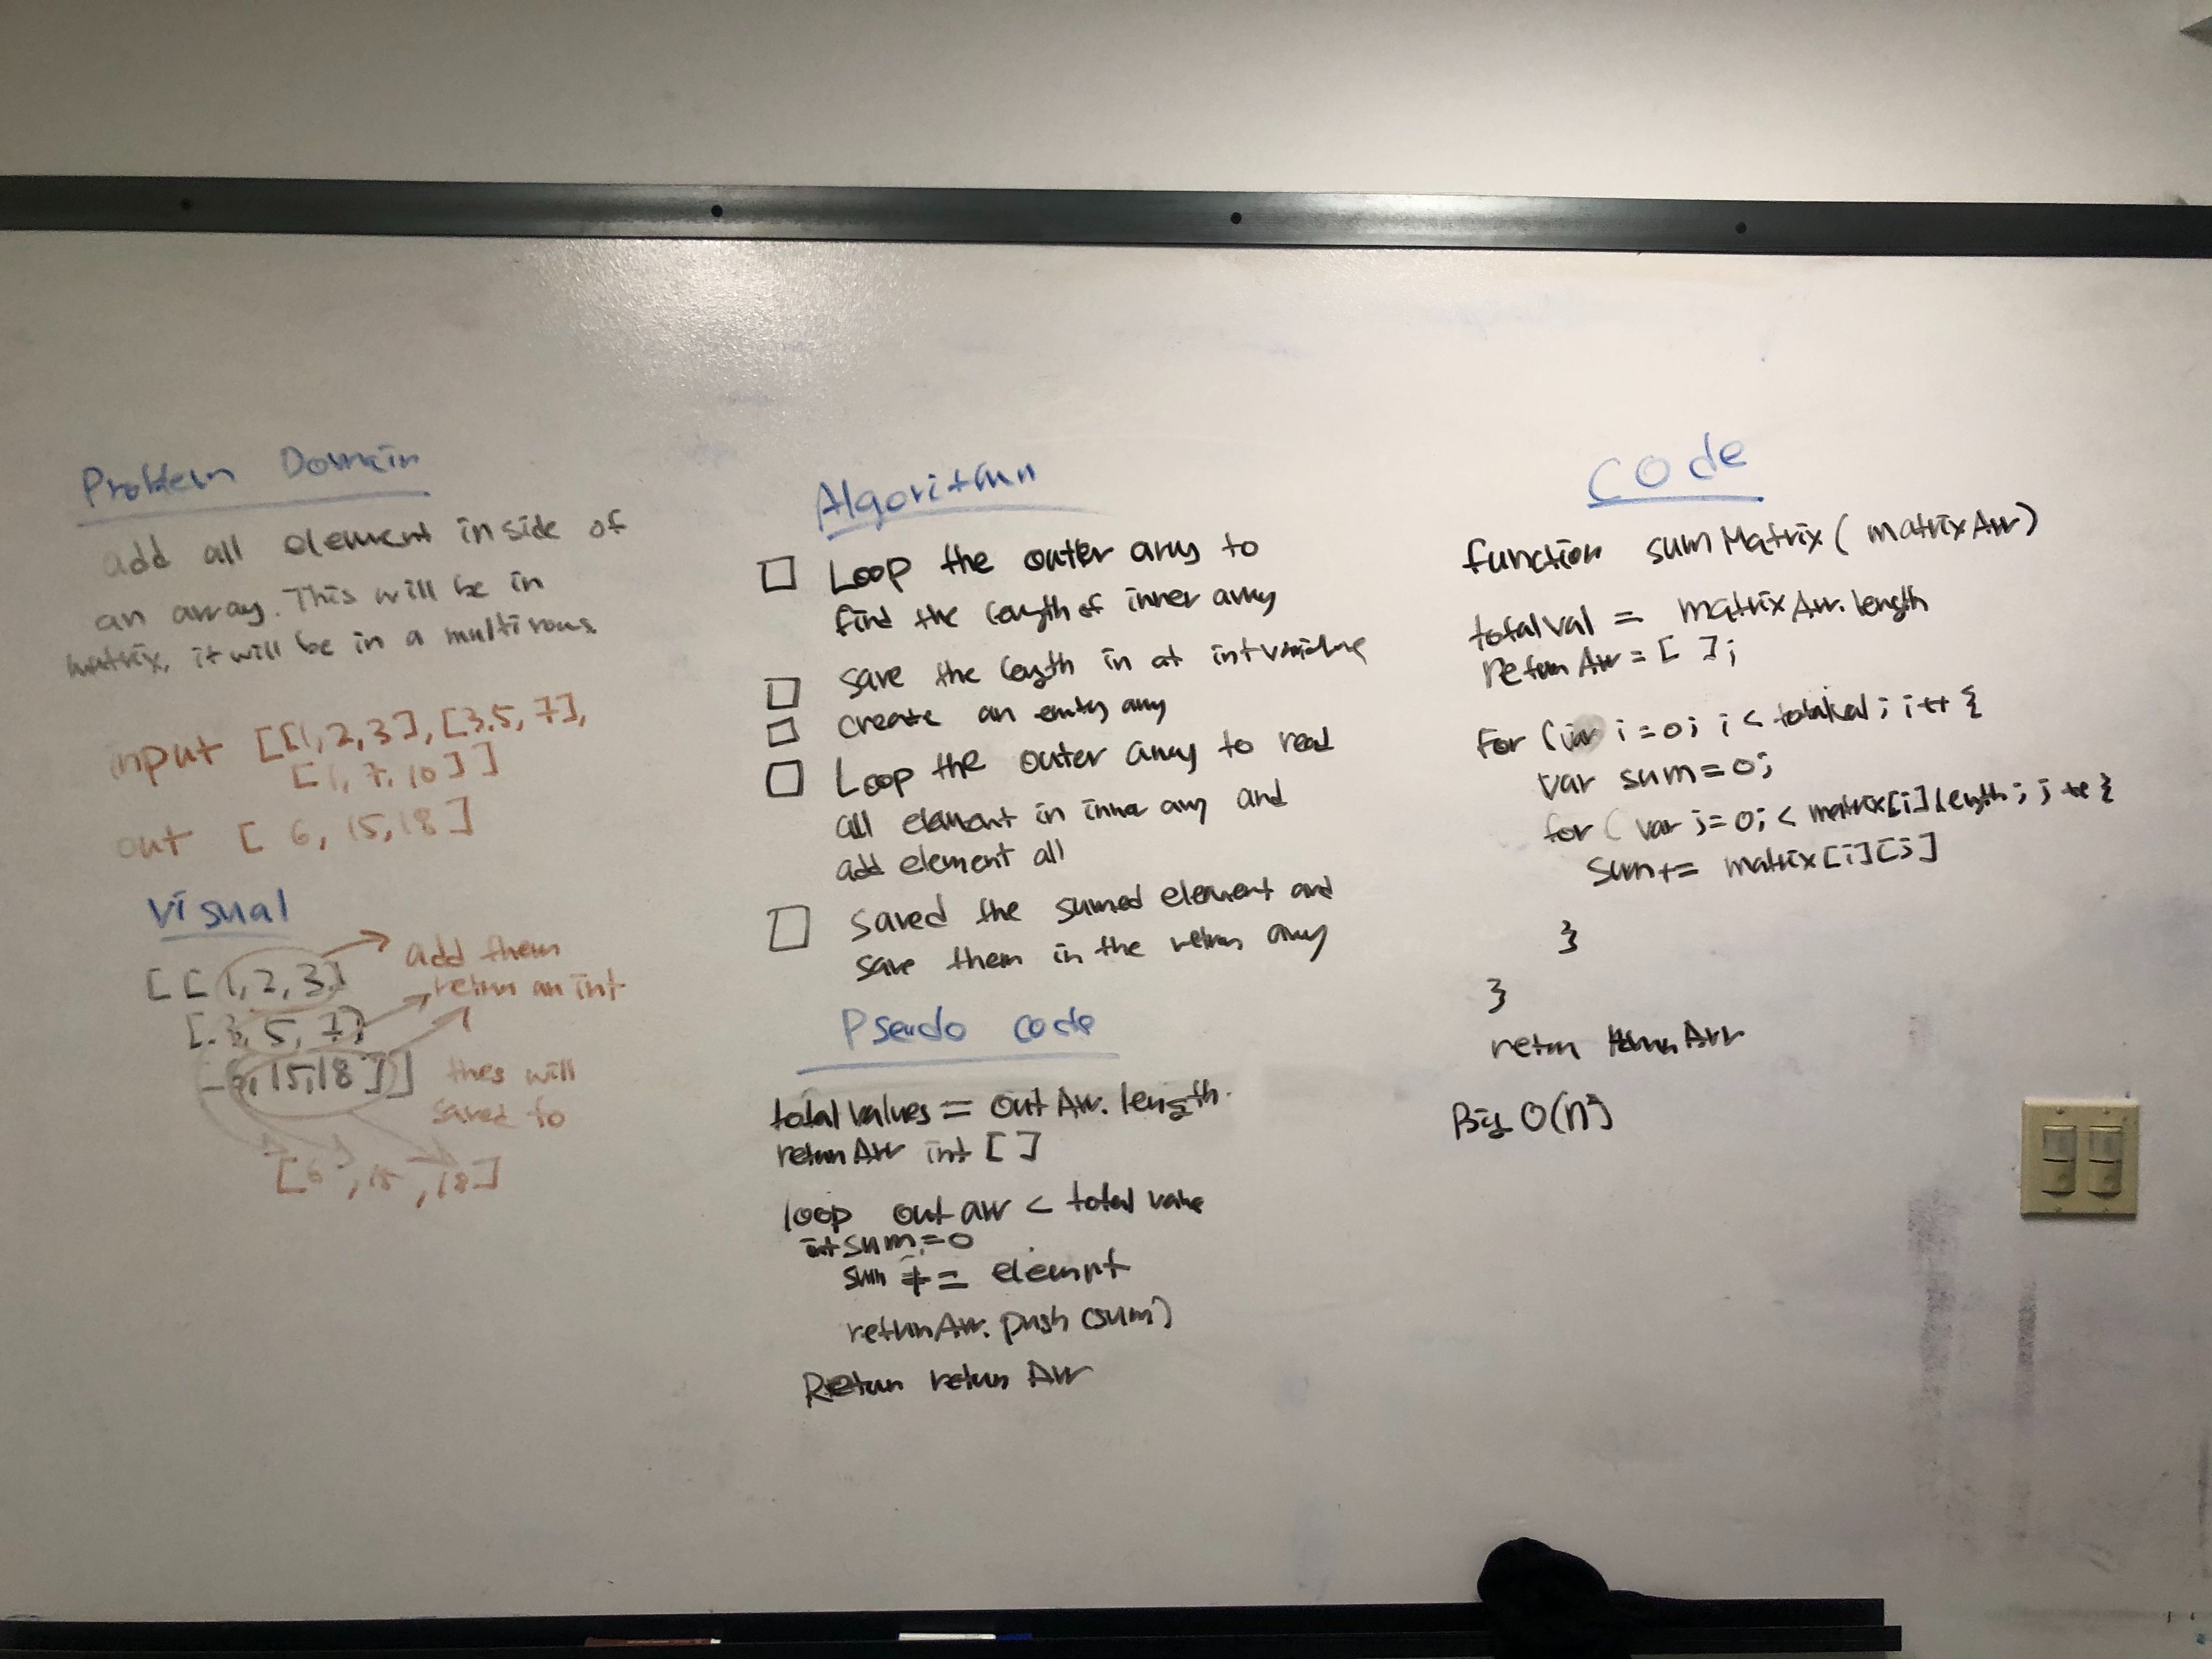 Problem Domain
add all element inside of
an array. This will be in
matrix, it will be in a multirows
input [[1,2,3],[3,5,7],
[1,7,10]]
out [6,15,18]
Visual
[[1,2,3]
[3,5,7]
,15,18]]
add them
return an int
thes will
saved to
[6,15,18]
Algorithm
Loop the outer array to
find the length of inner array
save the length in at int variable
create an empty array
Loop the outer array to read
all element in inner array and
add element all
saved the sumed element and
save them in the return array
Pseudo code
total values = outArr.length.
returnArr int []
loop outarr < total value
int sum = 0
sum += elemnt
returnArr.push(sum)
Return returnArr
Code
function sumMatrix(matrixArr)
totalval = matrixArr.length
returnArr = [];
for (var i=0; i < totalval; i++ {
var sum=0;
for (var j=0; < matrix[i]length; j++ {
sum+= matrix[i][j]
}
}
return returnArr
Big O(n²)